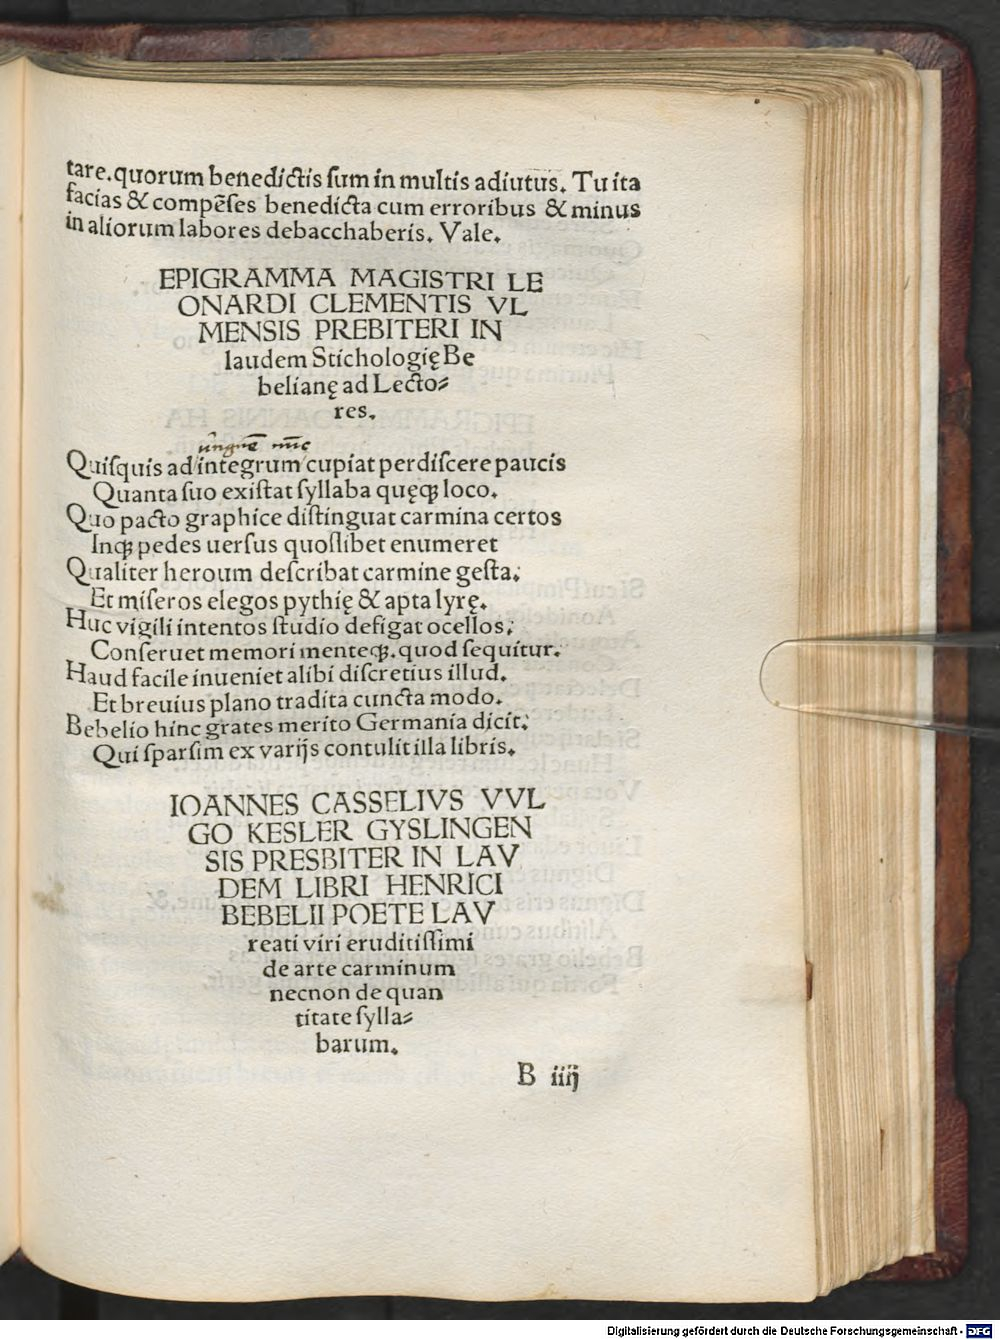 tare. quorum benedictis sum in multis adiutus. Tu ita
facias & compẽses benedicta cum erroribus & minus
in aliorum labores debacchaberis. Vale.
EPIGRAMMA MAGISTRI LE
ONARDI CLEMENTIS VL
MENSIS PREBITERI IN
laudem Stichologię Be
belianę ad Lecto⸗
res.
Quisquis ad integrum cupiat perdiscere paucis
Quanta suo existat syllaba quęqꝫ loco.
Quo pacto graphice distinguat carmina certos
Inqꝫ pedes uersus quoslibet enumeret
Qualiter heroum describat carmine gesta:
Et miseros elegos pythię & apta lyrę.
Huc vigili intentos studio defigat ocellos:
Conseruet memori menteqꝫ. quod sequitur.
Haud facile inueniet alibi discretius illud.
Et breuius plano tradita cuncta modo.
Bebelio hinc grates merito Germania dicit:
Qui sparsim ex varijs contulit illa libris.
IOANNES CASSELIVS VVL
GO KESLER GYSLINGEN
SIS PRESBITER IN LAV
DEM LIBRI HENRICI
BEBELII POETE LAV
reati viri eruditissimi
de arte carminum
necnon de quan
titate sylla⸗
barum.
B iiij
Digitalisierung gefördert durch die Deutsche Forschungsgemeinschaft - DFG